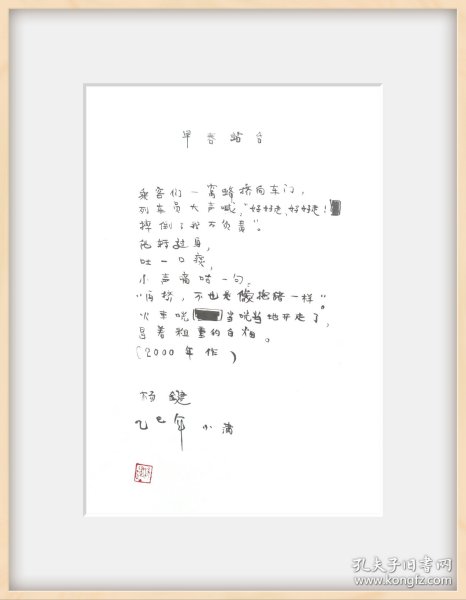 早春站台
乘客们一窝蜂挤向车门,
列车员大声喊,"好好走,好好走!
摔倒了我不负责"。
他转过身,
吐一口痰,
小声嘀咕一句,
"再挤,不也是像抱猪一样"。
火车咣当咣当地开走了,
冒着粗重的白烟。
(2000年作)
杨键
乙巳年 小满
孔夫子旧书网
www.kongfz.com